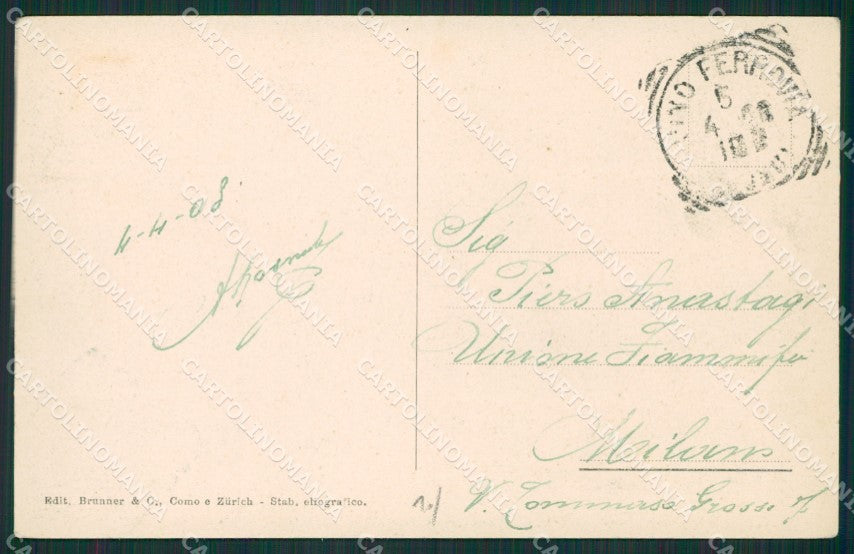 FERROVIA
5
4 08
4-4-08.
Sig
Piero Anastagi
Unione Fiammiferi
Milano
V. Tommaso Grossi 7
Edit. Brunner & C., Como e Zürich - Stab. eliografico.
CARTOLINOMANIA